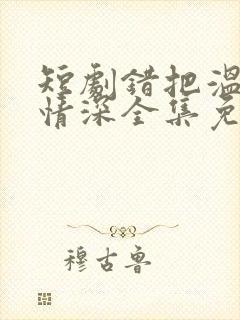 短劇錯把溫
情深全集免
穆古魯